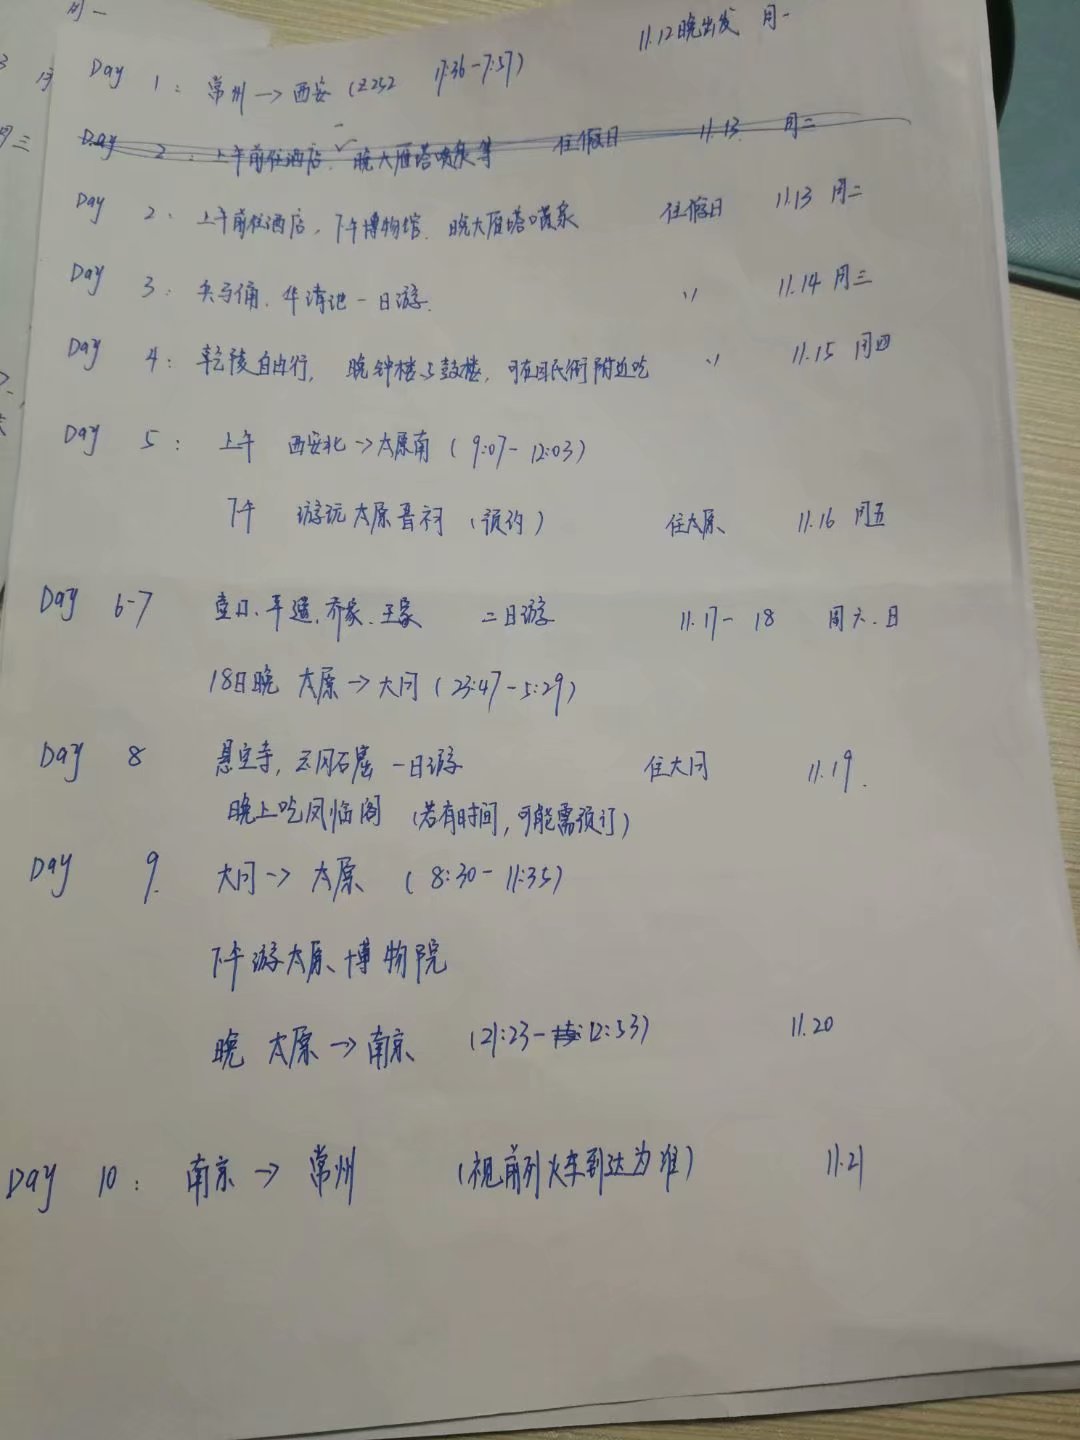 11.12晚出发 周一
Day 1: 常州→西安 (Z252 17:36-7:57)
Day 2: 上午前往酒店. 晚大雁塔喷泉等 住假日 11.13 周二
Day 2: 上午前往酒店, 下午博物馆. 晚大雁塔喷泉 住假日 11.13 周二
Day 3: 兵马俑, 华清池一日游. 〃 11.14 周三
Day 4: 乾陵自由行, 晚钟楼与鼓楼, 可在回民街附近吃 〃 11.15 周四
Day 5: 上午 西安北→太原南 (9:07-12:03)
下午 游玩太原晋祠 (预约) 住太原 11.16 周五
Day 6-7 壶口、平遥、乔家、王家 二日游 11.17-18 周六.日
18日晚 太原→大同 (23:47-5:29)
Day 8 悬空寺, 云冈石窟 一日游 住大同 11.19.
晚上吃凤临阁 (若有时间, 可能需预订)
Day 9. 大同→太原 (8:30-11:35)
下午游太原博物院
晚 太原→南京 (21:23-12:53) 11.20
Day 10: 南京→常州 (视前列火车到达为准) 11.21